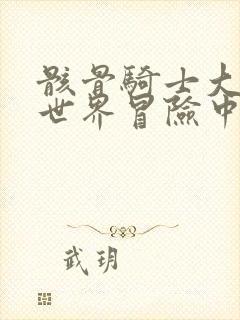 骸骨騎士大
世界冒險中
武玥